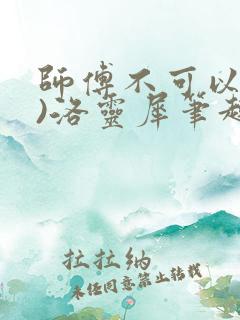 師傅不可以
)洛靈犀筆趣
拉拉納
未經同意禁止轉載